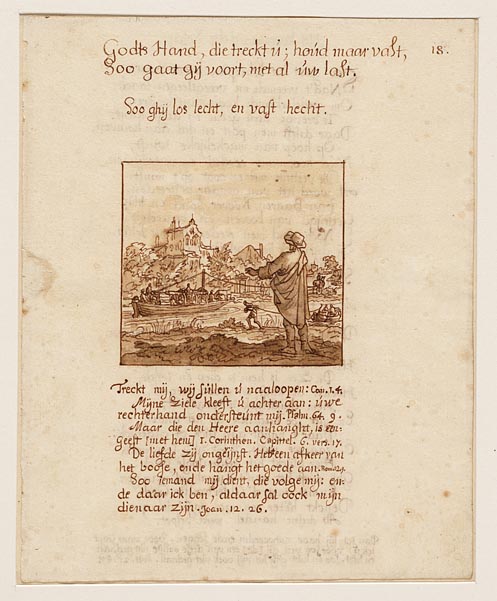 Godts Hand, die treckt ú; hoúd maar vast, 18.
Soo gaat gij voort, met al úw last.
Soo ghij los lecht, en vast hecht.
Treckt mij, wij súllen ú naaloopen: Can. 1. 4.
Mijne Ziele kleeft ú achter aan: úwe
rechterhand ondersteúnt mij. Psalm. 64. 9.
Maar die den Heere aanhanght, is een
Geest [met hem] 1. Corinthen. Capittel. 6. vers. 17.
De liefde zij ongeijnst. Hebt een afkeer van
het boose, ende hangt het goede aan. Rom.
Soo iemand mij dient, die volge mij: en:
de daar ick ben, aldaar sal oock mijn
dienaar zijn. Joan. 12. 26.